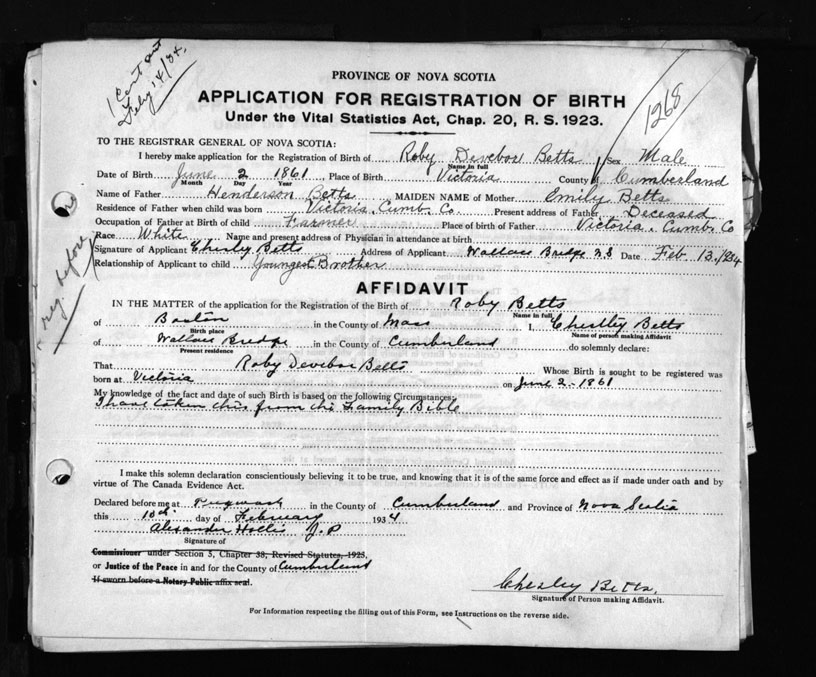 1 Cert sent
Feby 14/34.
1268
PROVINCE OF NOVA SCOTIA
APPLICATION FOR REGISTRATION OF BIRTH
Under the Vital Statistics Act, Chap. 20, R. S. 1923.
TO THE REGISTRAR GENERAL OF NOVA SCOTIA:
I hereby make application for the Registration of Birth of Roby Devebox Betts Sex Male
Name in full
Date of Birth June 2 1861 Place of Birth Victoria County of Cumberland
Month Day Year
Name of Father Henderson Betts MAIDEN NAME of Mother Emily Betts
Residence of Father when child was born Victoria, Cumb. Co Present address of Father Deceased
Occupation of Father at Birth of child Farmer Place of birth of Father Victoria, Cumb. Co
Race White Name and present address of Physician in attendance at birth
Signature of Applicant Chesly Betts Address of Applicant Wallace Bredge N.S Date Feb. 13./1934
Relationship of Applicant to child Youngest Brother
reg. before
AFFIDAVIT
IN THE MATTER of the application for the Registration of the Birth of Roby Betts
Name in full
of Boston in the County of Mass I, Chestley Betts
Birth place Name of person making Affidavit
of Wallace Bredge in the County of Cumberland do solemnly declare:
Present residence
That Roby Devebox Betts Whose Birth is sought to be registered was
born at Victoria on June 2-1861
My knowledge of the fact and date of such Birth is based on the following Circumstances:
I have taken this from the Family Bible
I make this solemn declaration conscientiously believing it to be true, and knowing that it is of the same force and effect as if made under oath and by
virtue of The Canada Evidence Act.
Declared before me at Pugwash in the County of Cumberland and Province of Nova Scotia
this 13th. day of February 1934
Alexander Hollis J.P
Signature of
Commissioner under Section 3, Chapter 38, Revised Statutes, 1923,
or Justice of the Peace in and for the County of Cumberland
If sworn before a Notary Public affix seal.
Chesley Betts.
Signature of Person making Affidavit.
For Information respecting the filling out of this Form, see Instructions on the reverse side.